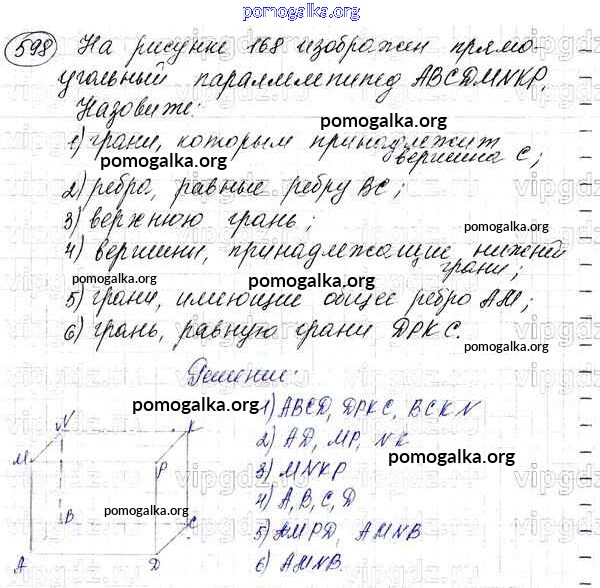 pomogalka.org
598 На рисунке 168 изображен прямо-
угольный параллелепипед ABCDMNKP.
Назовите:
1) грани, которым принадлежит
вершина C;
pomogalka.org
2) ребра, равные ребру BC;
pomogalka.org
3) верхнюю грань;
pomogalka.org
4) вершины, принадлежащие нижней
грани;
pomogalka.org
pomogalka.org
5) грани, имеющие общее ребро AM;
6) грань, равную грани DPKC.
pomogalka.org
Решение:
pomogalka.org
1) ABCD, DPKC, BCKN
2) AD, MP, NK
pomogalka.org
3) MNKP
4) A, B, C, D
5) AMPD, AMNB
6) AMNB.
N
K
M
P
pomogalka.org
B
C
A
D